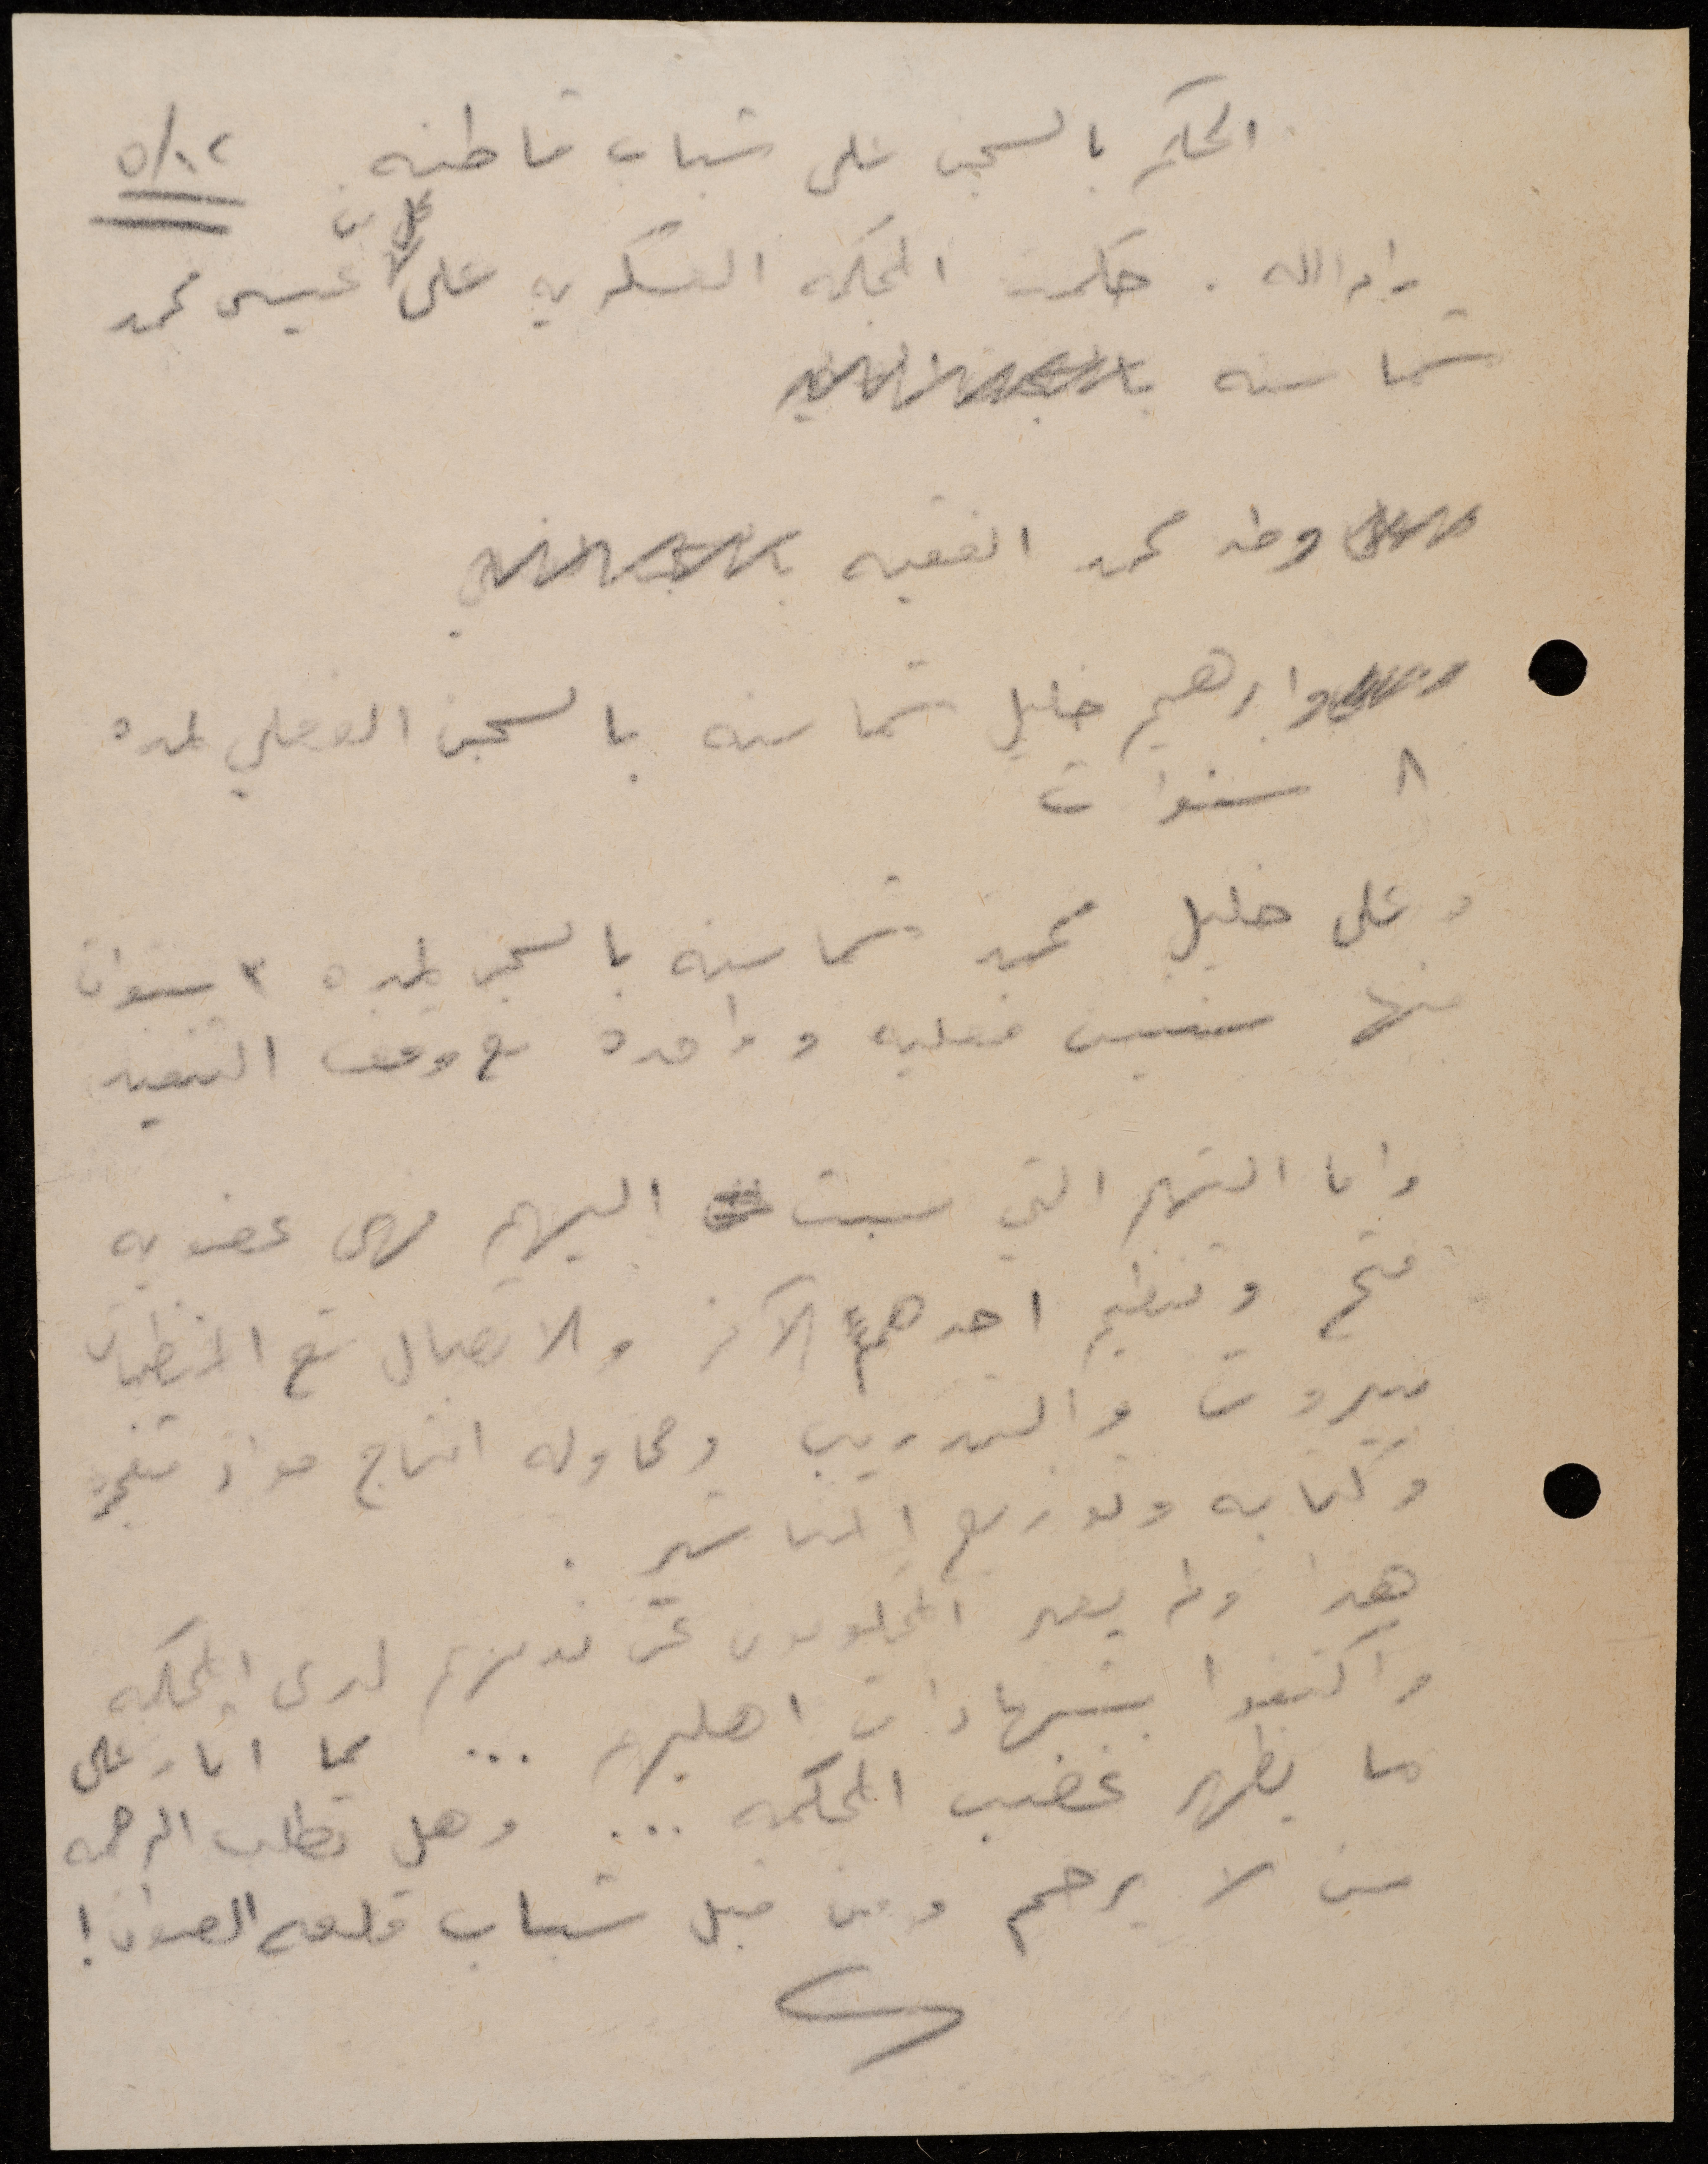 الحكم بالسجن على شباب قاطنه.
رام الله. حكمت المحكمه العسكريه على كل من عيسى محمد
شماسنه
وطه محمد الفقيه
وابرهيم خليل شماسنه بالسجن الفعلي لمده
٨ سنوات
وعلى خليل محمد شماسنه بالسجن لمده ٣ سنوات
منها سنتين فعليه وواحده مع وقف التنفيذ
واما التهم التي نسبت اليهم فهي عضويه
فتح وتنظيم احدهم الآخر والاتصال مع المنظمات
ببيروت والتدريب ومحاوله انتاج مواد متفجره
وكتابه وتوزيع المناشير.
هذا ولم يعبر المحكومون عن ندمهم لدى المحكمه
واكتفوا بشهادات اهليهم ... مما اثار على
ما يظهر غضب المحكمه ... وهل تطلب الرحمه
من لا يرحم ومن قبل شباب قلعه الصوان!